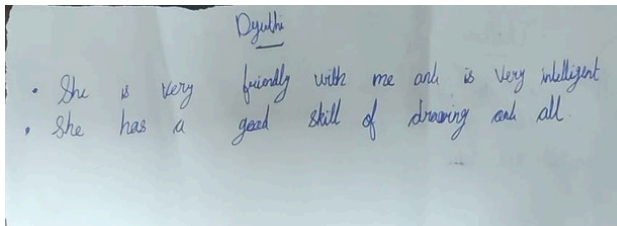 Dyuthi
• She is very friendly with me and is very intelligent
• She has a good skill of drawing and all.